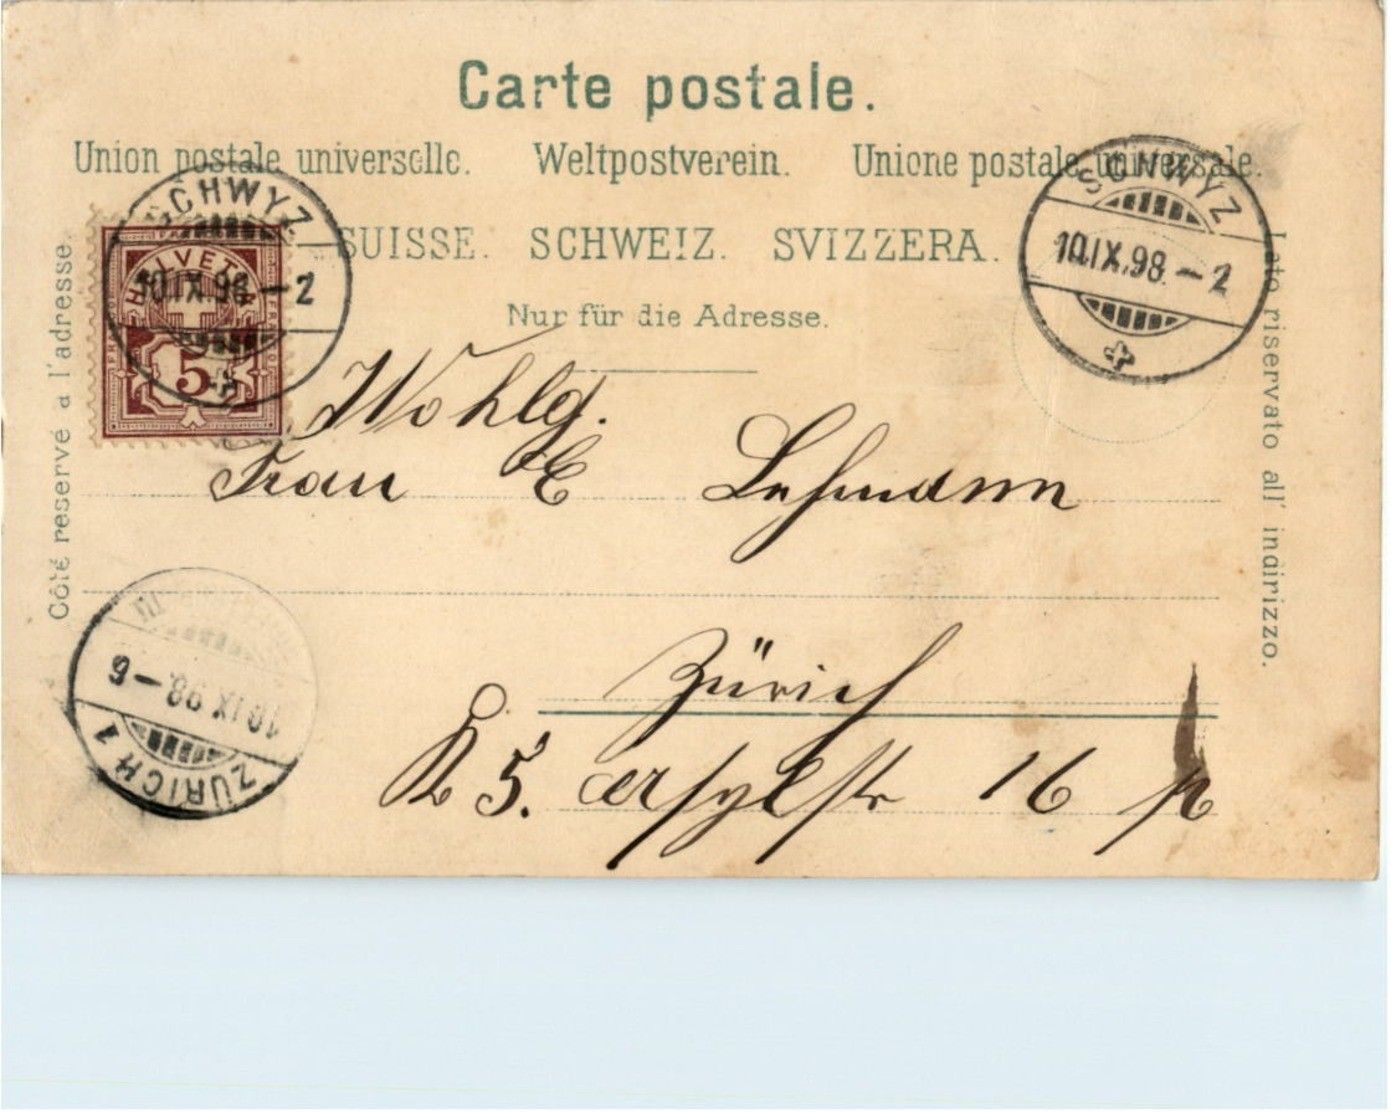 Carte postale.
Union postale universelle. Weltpostverein. Unione postale universale.
SUISSE. SCHWEIZ. SVIZZERA.
Nur für die Adresse.
Côté reservé a l'adresse.
Lato riservato all' indirizzo.
SCHWYZ
10.IX.98.-2
HELVETIA
FRANCO
5
SCHWYZ
10.IX.98.-2
Wohlg.
Frau E Lehmann
Zürich
K 5. 16
ZÜRICH 1
10.IX.98.-6
III